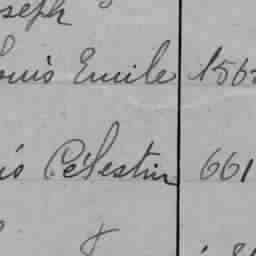 oseph
ouis Emile 156
is Célestin 661